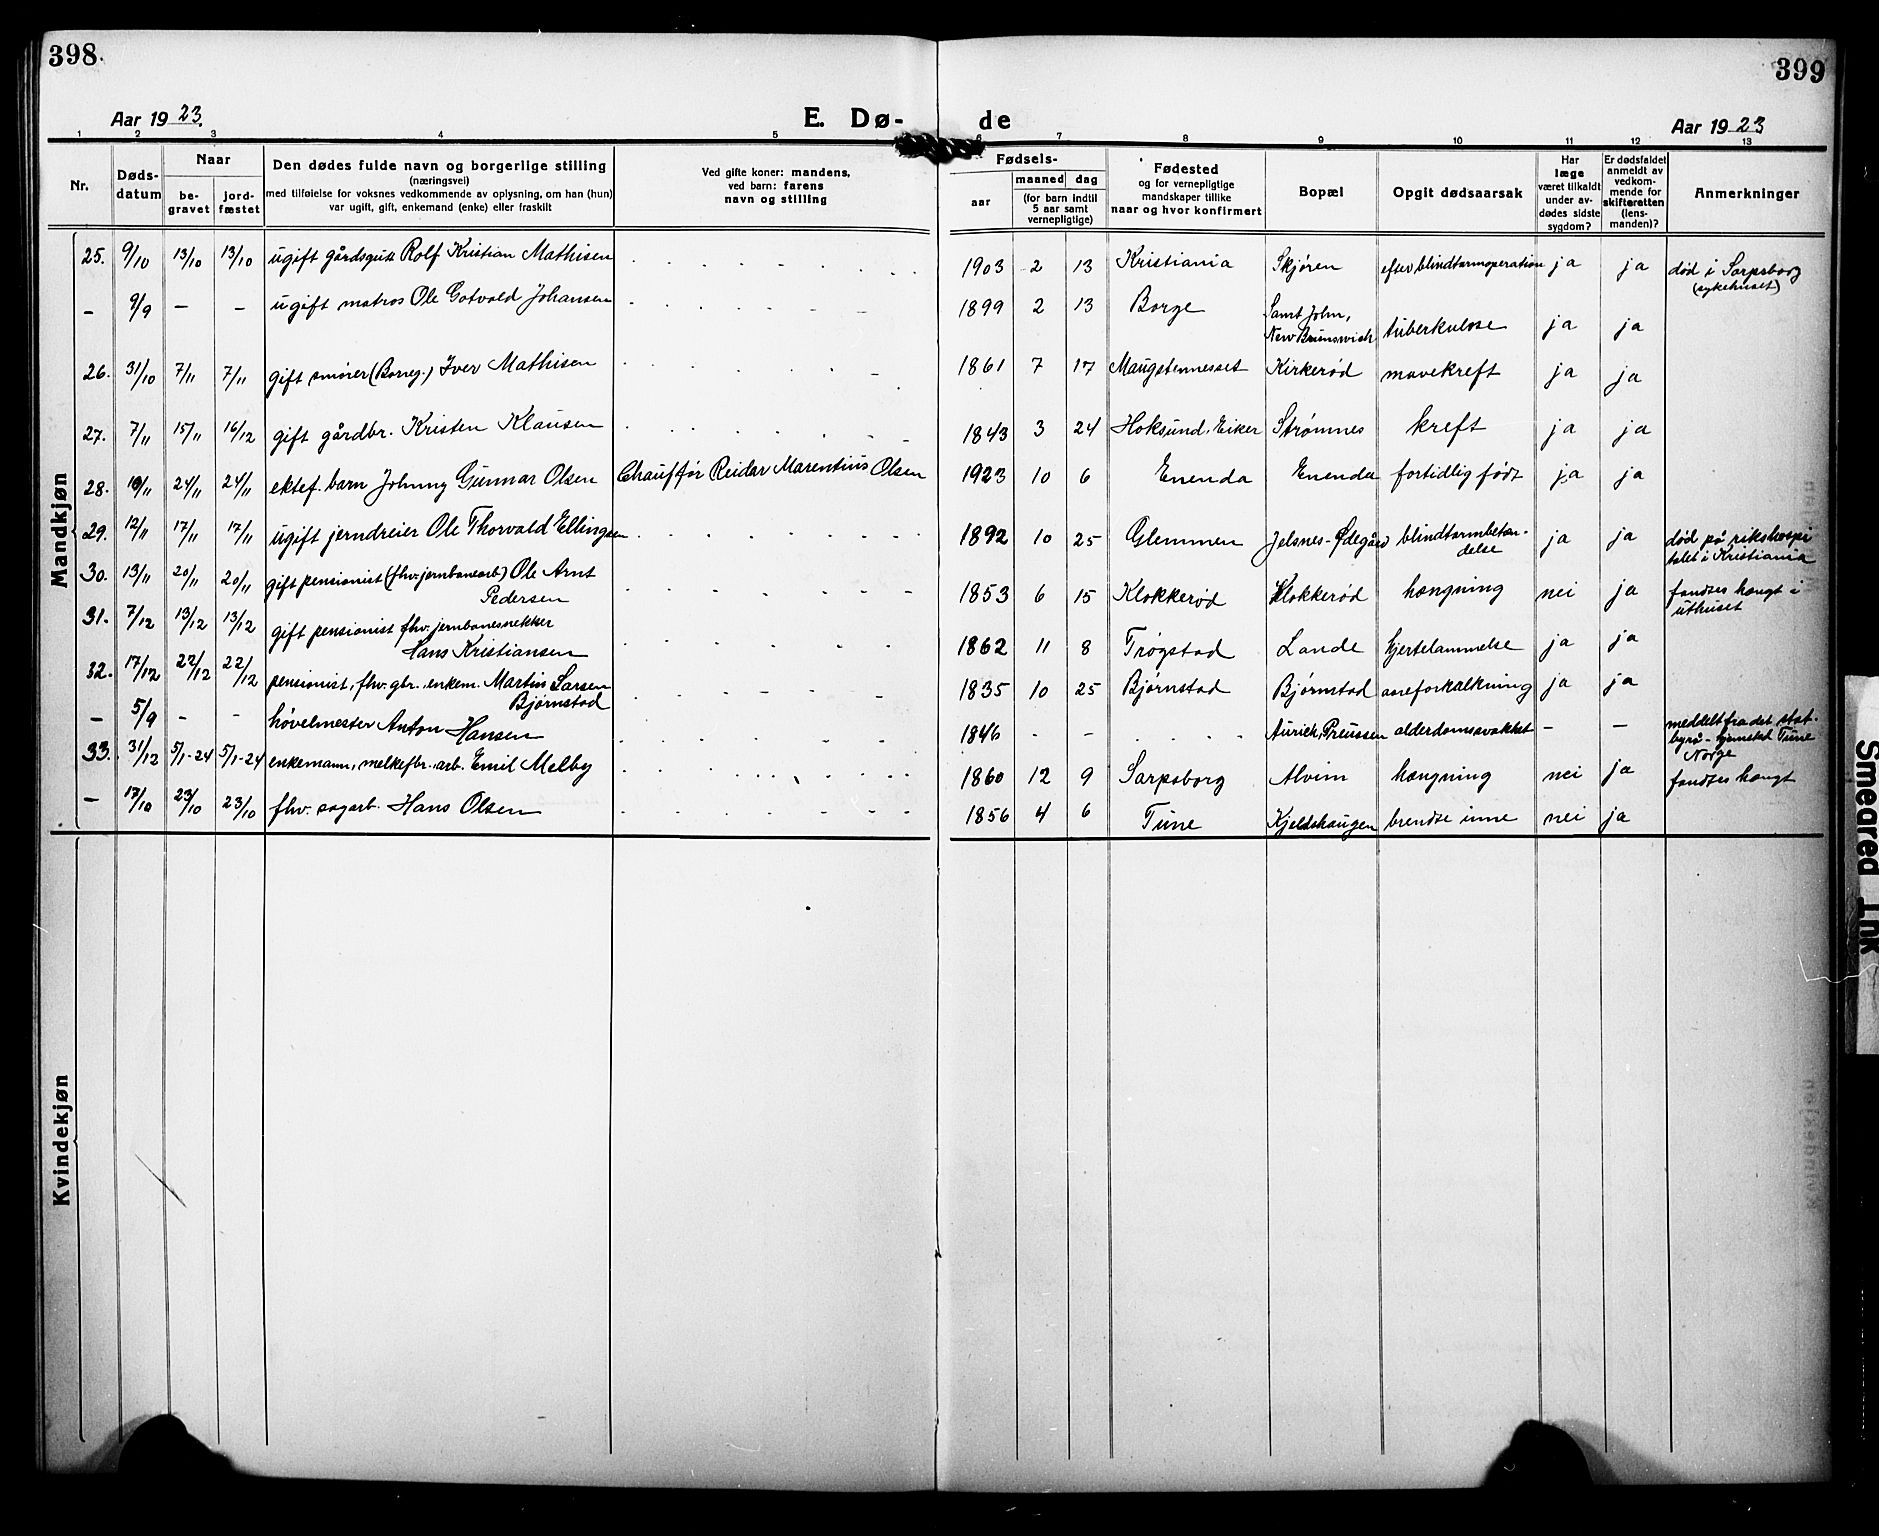 398.
399
Aar 1923.
E. Dø-
de
Aar 1923
1 2 3 4 5 6 7 8 9 10 11 12 13
Nr.
Døds-
datum
Naar
be-
gravet
jord-
fæstet
Den dødes fulde navn og borgerlige stilling
(næringsvei)
med tilføielse for voksnes vedkommende av oplysning, om han (hun)
var ugift, gift, enkemand (enke) eller fraskilt
Ved gifte koner: mandens,
ved barn: farens
navn og stilling
Fødsels-
aar
maaned
dag
(for barn indtil
5 aar samt
vernepligtige)
Fødested
og for vernepligtige
mandskaper tillike
naar og hvor konfirmert
Bopæl
Opgit dødsaarsak
Har
læge
været tilkaldt
under av-
dødes sidste
sygdom?
Er dødsfaldet
anmeldt av
vedkom-
mende for
skifteretten
(lens-
manden)?
Anmerkninger
Mandkjøn
25. 9/10 13/10 13/10 ugift gårdsgutt Rolf Kristian Mathisen 1903 2 13 Kristiania Skjøren efter blindtarmoperation ja ja død i Sarpsborg
(sykehuset)
– 9/9 – – ugift matros Ole Gotvald Johansen 1899 2 13 Borge Saint John,
New Brunswich tuberkulose ja ja
26. 31/10 7/11 7/11 gift smører (Borreg.) Iver Mathisen 1861 7 17 Maugstenneset Kirkerød mavekreft ja ja
27. 7/11 15/11 16/12 gift gårdbr. Kristen Klausen 1843 3 24 Hoksund, Eiker Strømnes kreft ja ja
28. 10/11 24/11 24/11 ektef. barn Johnny Gunnar Olsen Chauffør Reidar Marentius Olsen 1923 10 6 Enenda Enenda fortidlig født ja ja
29. 12/11 17/11 17/11 ugift jerndreier Ole Thorvald Ellingsen 1892 10 25 Glemmen Jelsnes-Ødegård blindtarmbetæn-
delse ja ja død på rikshospi
talet i Kristiania
30. 13/11 20/11 20/11 gift pensionist (fhv. jernbanearb) Ole Arnt
Pedersen 1853 6 15 Klokkerød Klokkerød hængning nei ja fandtes hængt i
uthuset
31. 7/12 13/12 13/12 gift pensionist fhv. jernbanesnekker
Hans Kristiansen 1862 11 8 Trøgstad Lande hjertelammelse ja ja
32. 17/12 22/12 22/12 pensionist, fhv. gbr., enkem. Martin Larsen
Bjørnstad 1835 10 25 Bjørnstad Bjørnstad areforkalkning ja ja
– 5/9 – – høvelmester Anton Hansen 1846 - - Aurich, Preussen alderdomssvakhet – – meddelt fra det stat.
byrå – hjemsted Tune
Norge
33. 31/12 5/1-24 5/1-24 enkemann, melkefbr. arb. Emil Melby 1860 12 9 Sarpsborg Alvim hængning nei ja fandtes hængt
– 17/10 23/10 23/10 fhv. sagarb. Hans Olsen 1856 4 6 Tune Kjeldshaugen brendte inne nei ja
Kvindekjøn
Smeared Ink